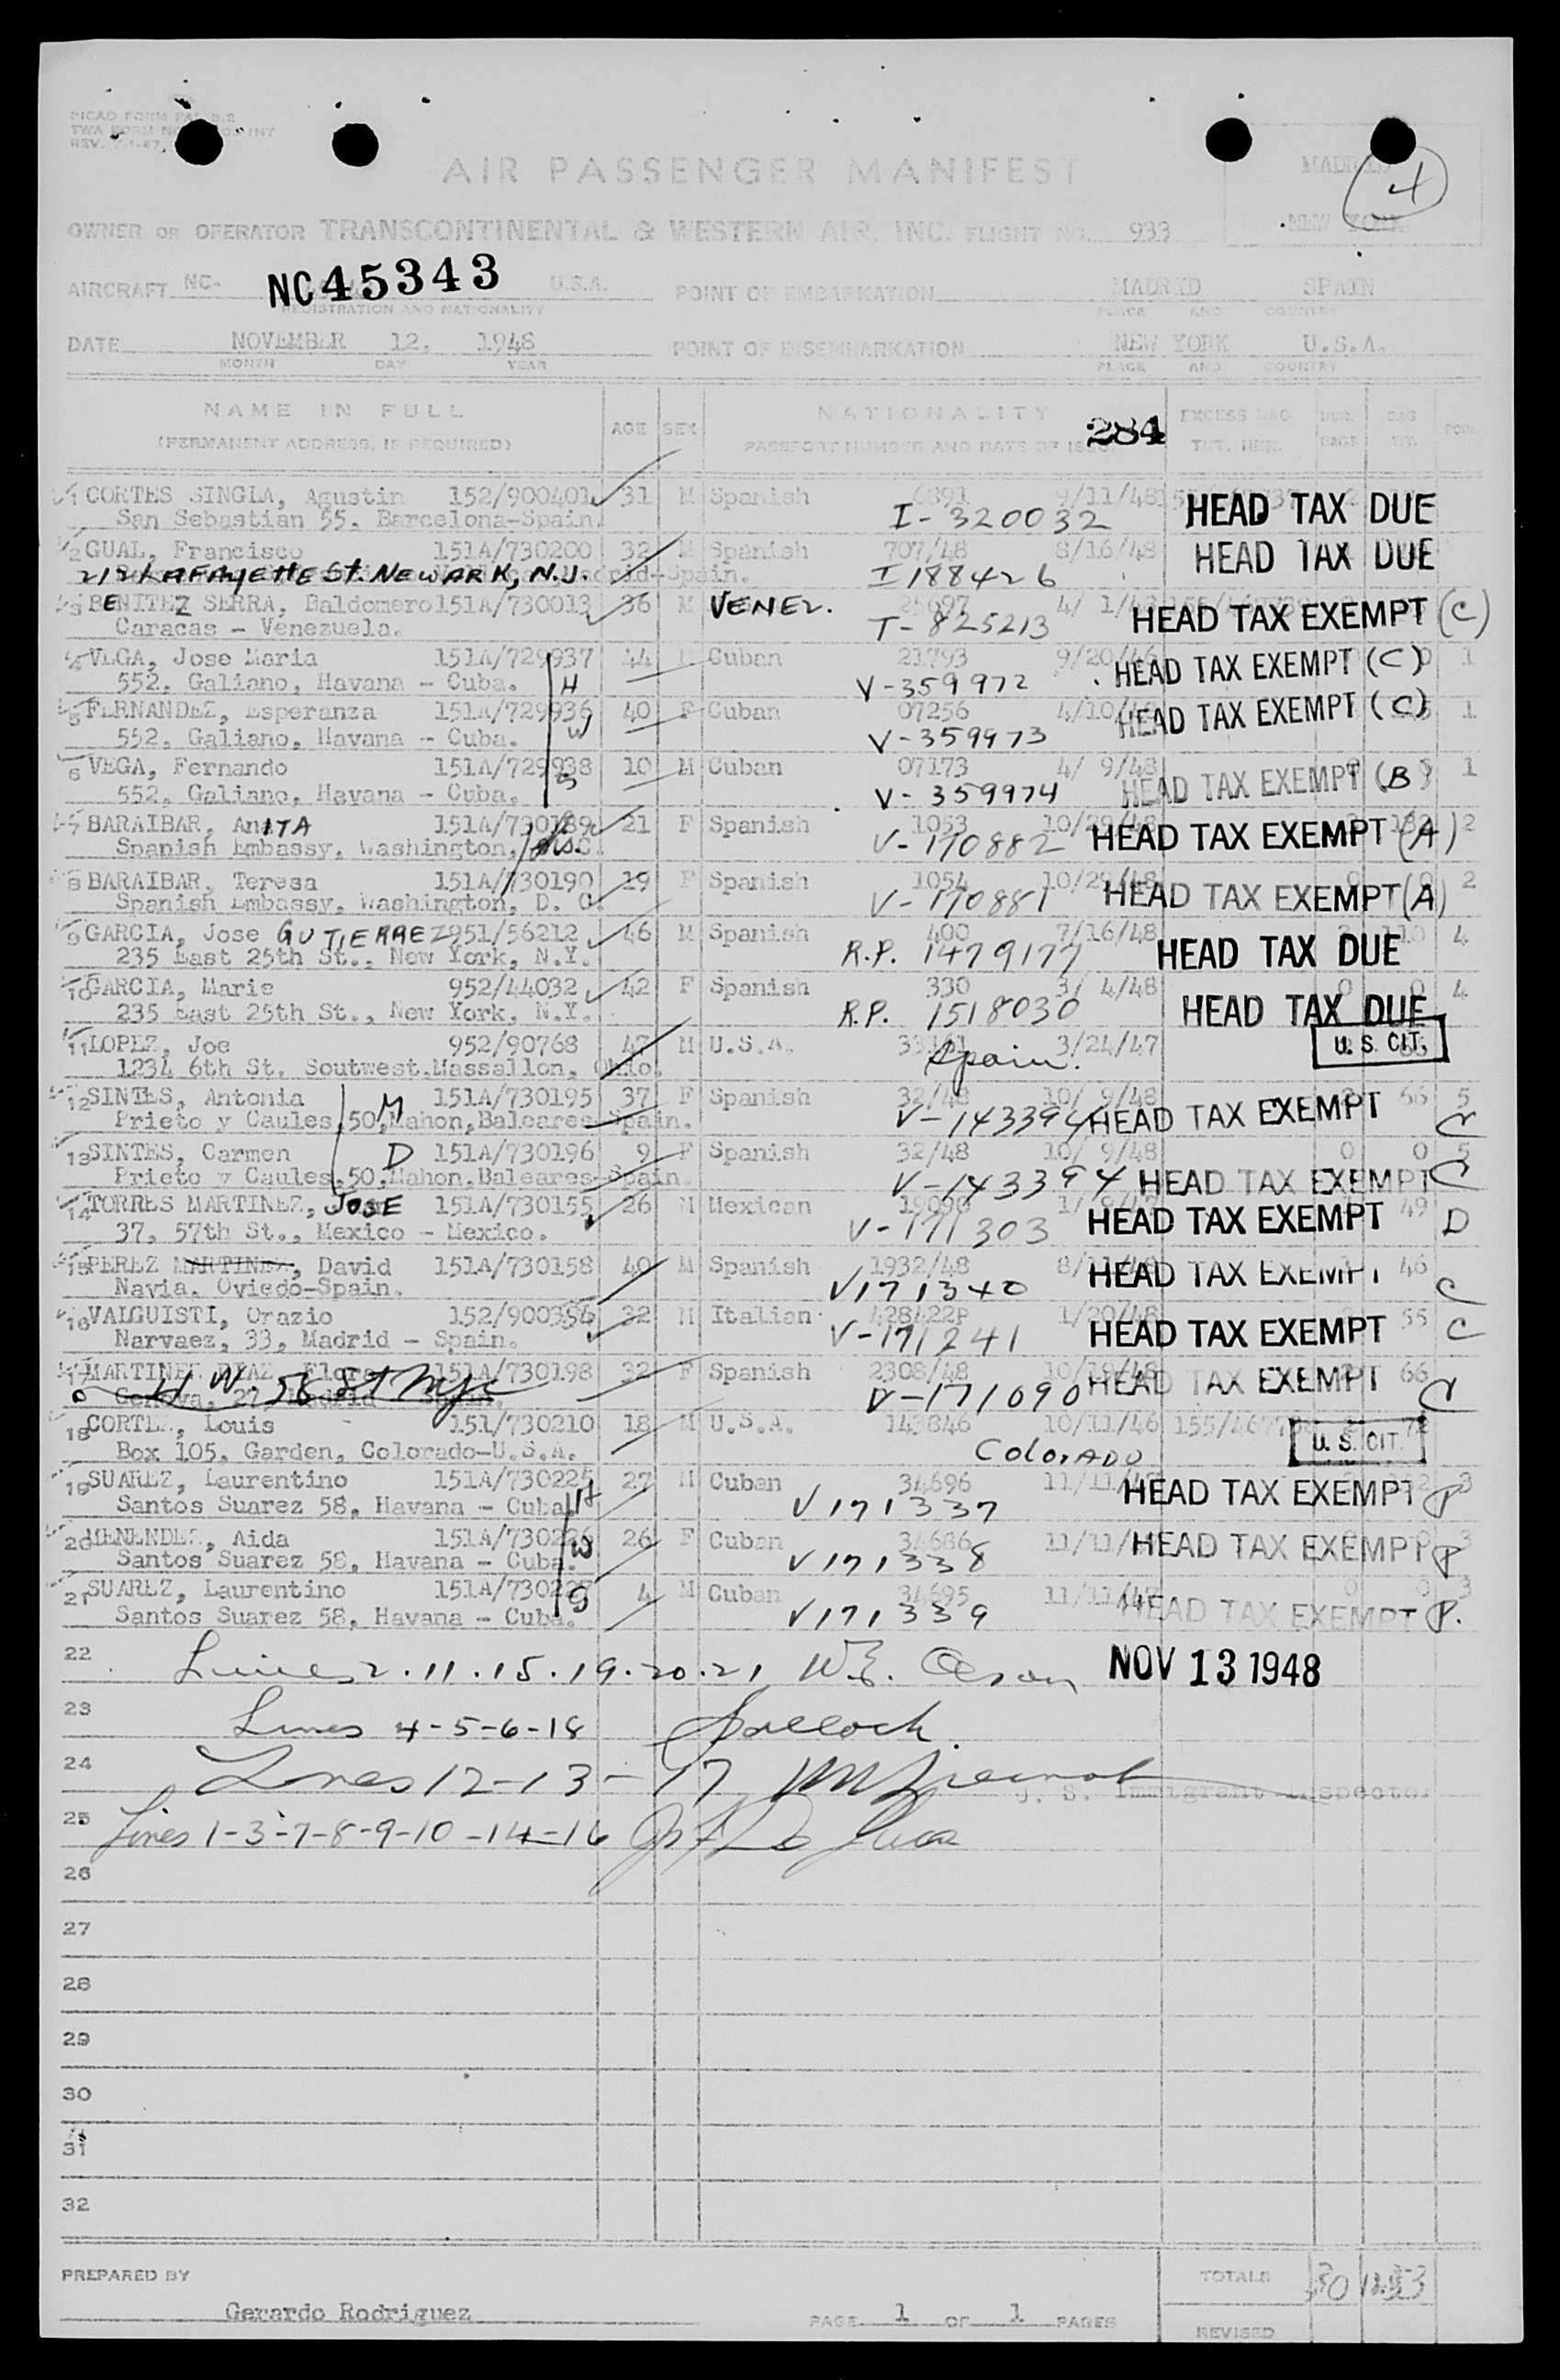 PICAO FORM
TWA FORM
REV.
AIR PASSENGER MANIFEST
MADRID
4
NEW YORK
OWNER OR OPERATOR TRANSCONTINENTAL & WESTERN AIR, INC. FLIGHT NO. 933
AIRCRAFT NC- NC45343 U.S.A. POINT OF EMBARKATION MADRID SPAIN
REGISTRATION AND NATIONALITY PLACE AND COUNTRY
DATE NOVEMBER 12, 1948 POINT OF DISEMBARKATION NEW YORK U.S.A.
MONTH DAY YEAR PLACE AND COUNTRY
NAME IN FULL AGE SEX NATIONALITY 284 EXCESS BAG
(PERMANENT ADDRESS, IF REQUIRED) PASSPORT NUMBER AND DATE OF ISSUE TKT. NBR. BAGS WT.
1 CORTES SINGLA, Agustin 152/900401 31 M Spanish 6891 9/11/48 HEAD TAX DUE
San Sebastian 55, Barcelona-Spain. I-320032
2 GUAL, Francisco 151A/730200 32 M Spanish 707/48 8/16/48 HEAD TAX DUE
212 LAFAYETTE St. NEWARK, N.J. Madrid-Spain. I188426
3 BENITEZ SERRA, Baldomero 151A/730013 36 M VENEZ. 25697 HEAD TAX EXEMPT (C)
Caracas - Venezuela. T-825213
4 VEGA, Jose Maria 151A/729937 44 M Cuban 21793 9/20/46 HEAD TAX EXEMPT (C) 1
552, Galiano, Havana - Cuba. H V-359972
5 FERNANDEZ, Esperanza 151A/729936 40 F Cuban 07256 4/10/48 HEAD TAX EXEMPT (C) 1
552, Galiano, Havana - Cuba. W V-359973
6 VEGA, Fernando 151A/729938 10 M Cuban 07173 4/ 9/48 1
552, Galiano, Havana - Cuba. S V-359974 HEAD TAX EXEMPT (B)
7 BARAIBAR, AnITA 151A/730189 21 F Spanish 1053 10/29/48 HEAD TAX EXEMPT (A) 2
Spanish Embassy, Washington, V-170882
8 BARAIBAR, Teresa 151A/730190 19 F Spanish 1054 10/29/48 HEAD TAX EXEMPT (A) 2
Spanish Embassy, Washington, D. C. V-170881
9 GARCIA, Jose GUTIERREZ 951/56212 46 M Spanish 400 7/16/48 110 4
235 East 25th St., New York, N.Y. R.P. 1479177 HEAD TAX DUE
10 GARCIA, Marie 952/44032 42 F Spanish 330 3/ 4/48 0 0 4
235 East 25th St., New York, N.Y. R.P. 1518030 HEAD TAX DUE
11 LOPEZ, Joe 952/90768 47 M U.S.A. 3/24/47 U. S. CIT.
1234 6th St. Soutwest.Massallon, Ohio. Spain.
12 SINTES, Antonia 151A/730195 37 F Spanish 32/48 10/ 9/48 66 5
Prieto y Caules,50,Mahon,Baleares-Spain. M V-143394 HEAD TAX EXEMPT C
13 SINTES, Carmen D 151A/730196 9 F Spanish 32/48 10/ 9/48 0 0 5
Prieto y Caules,50,Mahon,Baleares-Spain. V-143394 HEAD TAX EXEMPT C
14 TORRES MARTINEZ, JOSE 151A/730155 26 M Mexican 19090 HEAD TAX EXEMPT 49 D
37, 57th St., Mexico - Mexico. V-171303
15 PEREZ MARTINEZ, David 151A/730158 40 M Spanish 1932/48 HEAD TAX EXEMPT 46
Navia, Oviedo-Spain. V171340 C
16 VALGUISTI, Orazio 152/900394 32 M Italian 428422P 1/20/48 55
Narvaez, 33, Madrid - Spain. V-171241 HEAD TAX EXEMPT C
17 MARTINEZ DIAZ, Flora 151A/730198 32 F Spanish 2308/48 10/19/48 66
W. 58 St NYC Genova, 27, Madrid - Spain. V-171090 HEAD TAX EXEMPT C
18 CORTEZ, Louis 151/730210 18 M U.S.A. 143846 10/11/46 72
Box 105, Garden, Colorado-U.S.A. COlORADO U. S. CIT.
19 SUAREZ, Laurentino 151A/730225 27 M Cuban 34696 11/11/48 3
Santos Suarez 58, Havana - Cuba. H V171337 HEAD TAX EXEMPT P
20 MENENDEZ, Aida 151A/730226 26 F Cuban 34686 11/11/48 3
Santos Suarez 58, Havana - Cuba. W V171338 HEAD TAX EXEMPT P
21 SUAREZ, Laurentino 151A/730227 4 M Cuban 34695 11/11/48 0 0 3
Santos Suarez 58, Havana - Cuba. S V171339 HEAD TAX EXEMPT P.
22 Lines 2.11.15.19.20.21 NOV 13 1948
23 Lines 4-5-6-18
24 Lines 12-13-17
U. S. Immigrant Inspector
25 Lines 1-3-7-8-9-10-14-16
26
27
28
29
30
31
32
PREPARED BY TOTALS
Gerardo Rodriguez PAGE 1 OF 1 PAGES
REVISED